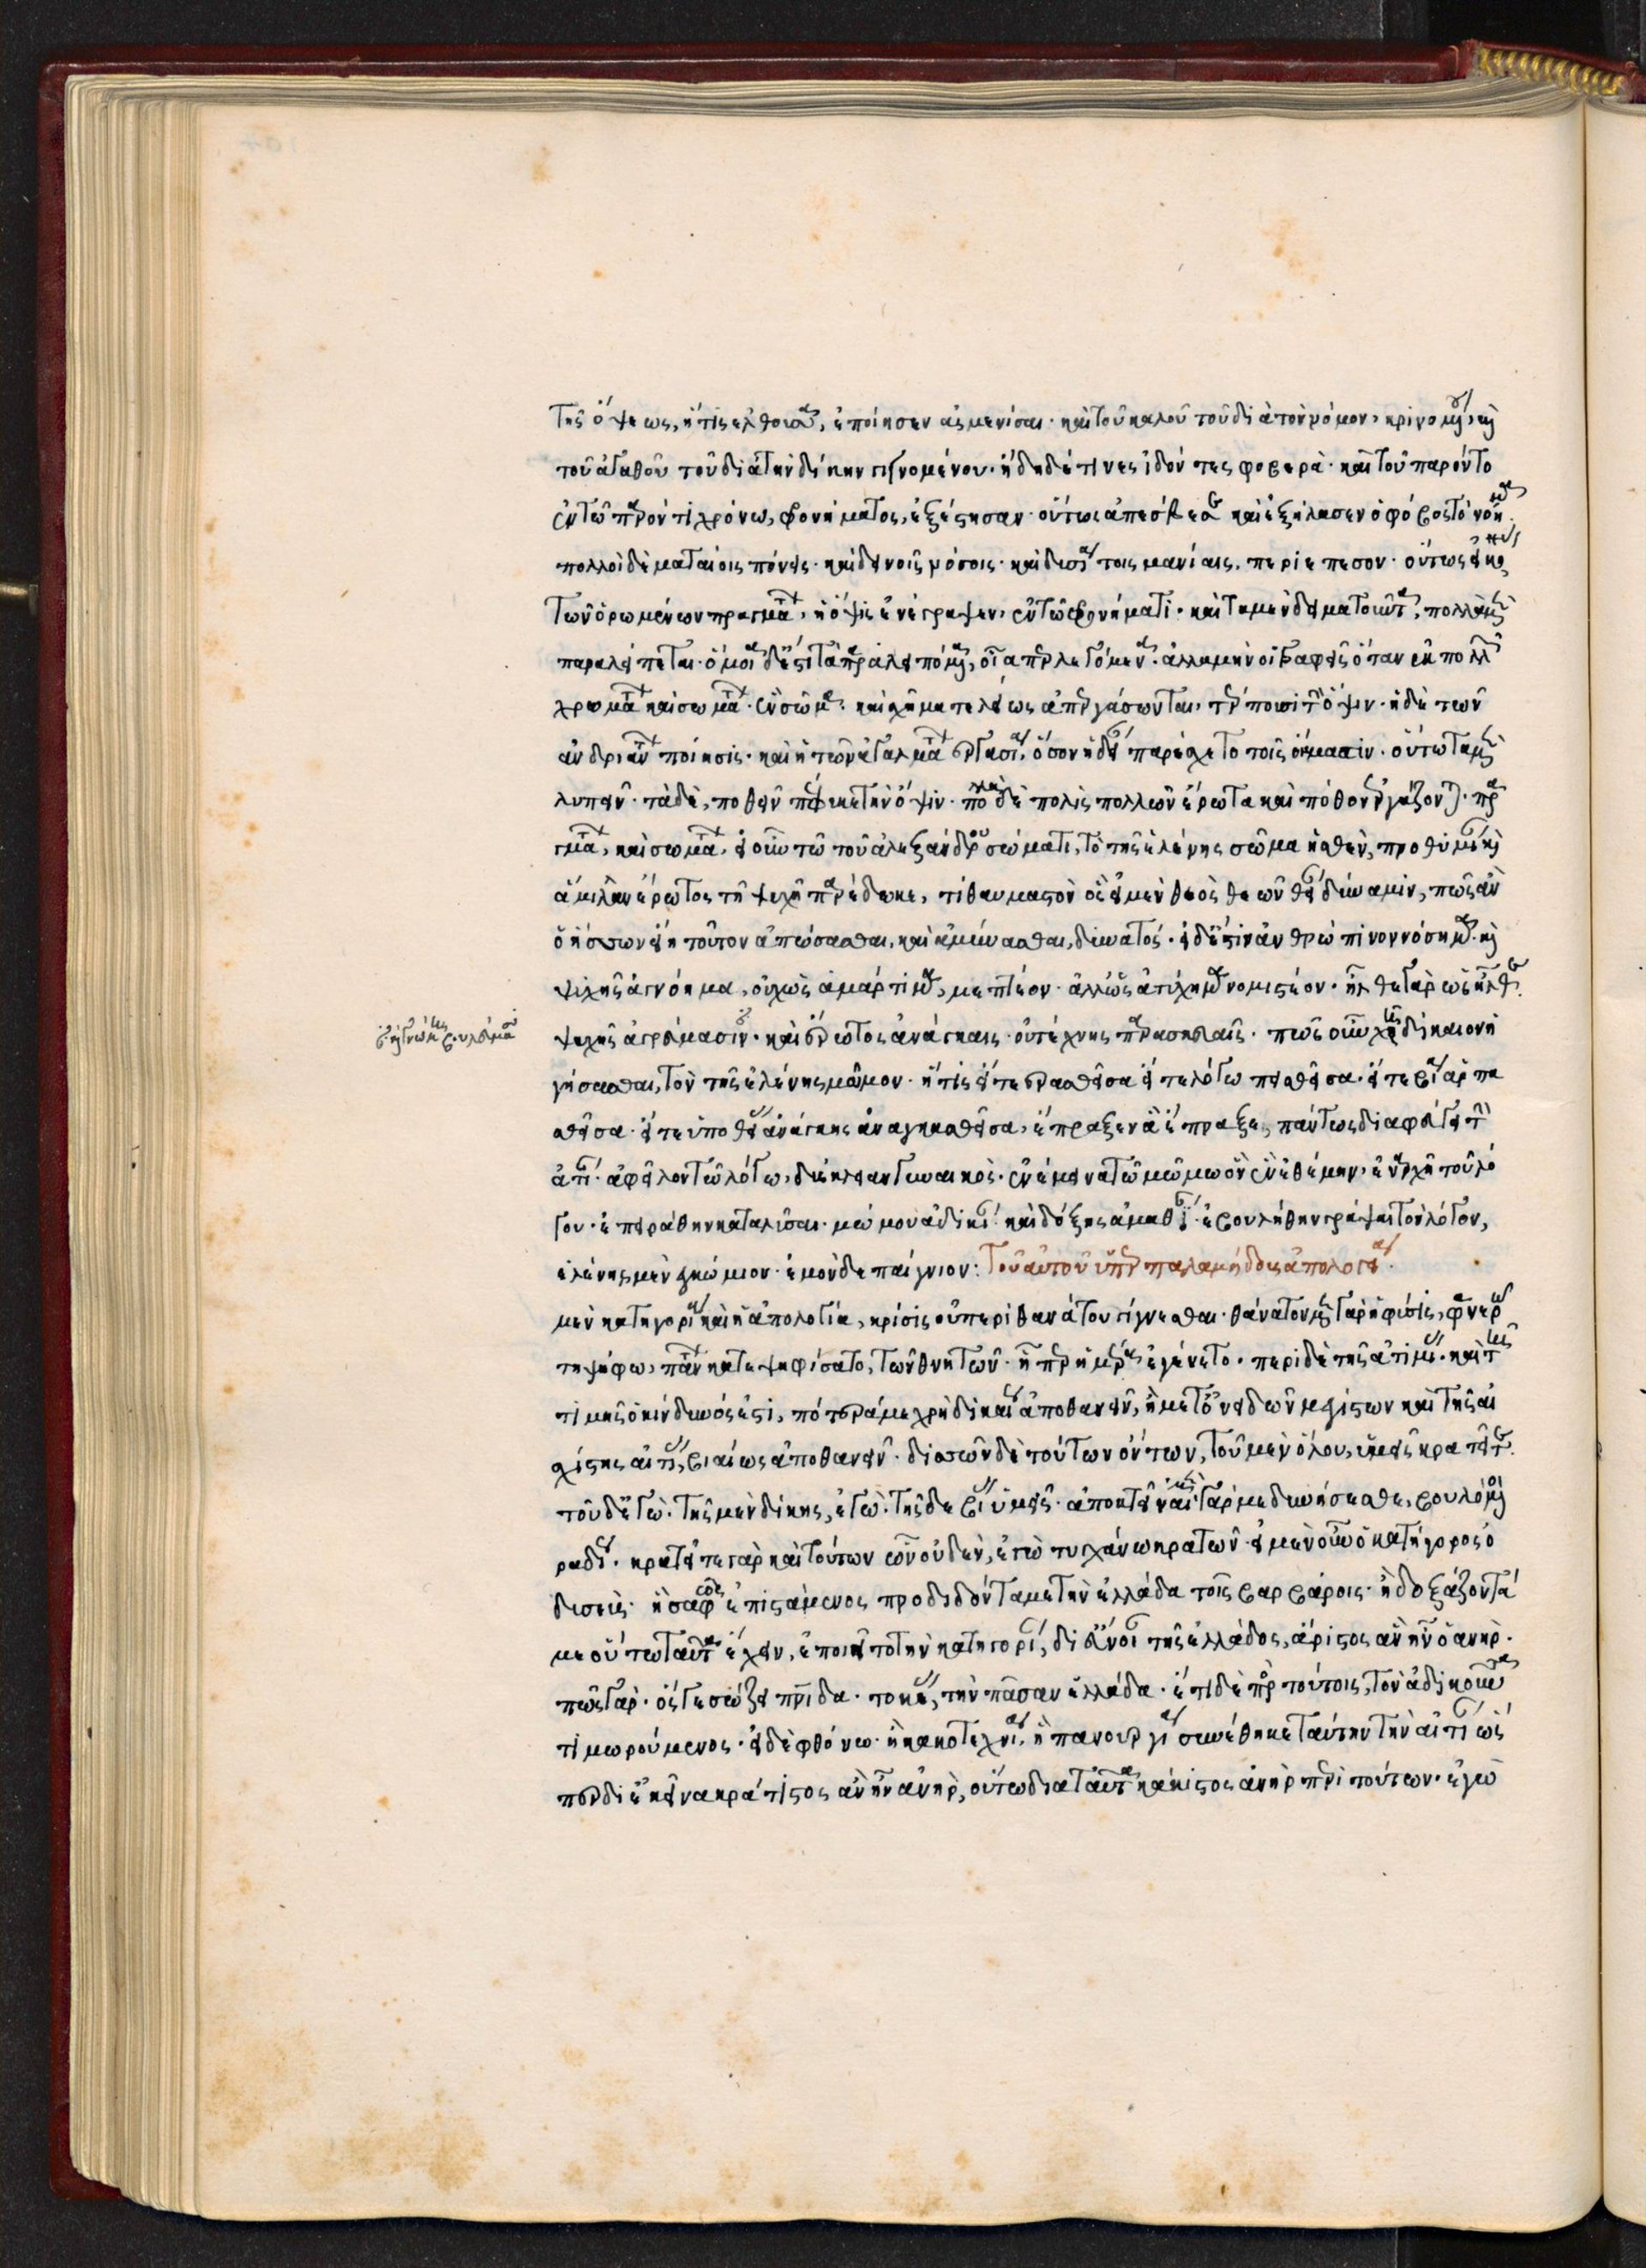 τῆς ὄψεως, ἥτις ἐλθοῦσα, ἐποίησεν ἀσμενίσαι· καὶ τοῦ καλοῦ τοῦ διὰ τὸν νόμον, κρινομένου, καὶ
τοῦ ἀγαθοῦ τοῦ διὰ τὴν δίκην γιγνομένου· ἤδη δέ τινες ἰδόντες φοβερὰ· καὶ τοῦ παρόντο
ἐν τῶ παρόντι χρόνω, φρονήματος, ἐξέστησαν· οὕτως ἀπέσβεσε καὶ ἐξήλασεν ὁ φόβος τὸ νόημα.
πολλοὶ δὲ ματαίοις πόνοις· καὶ δειναῖς νόσοις· καὶ δυσιάτοις μανίαις, περιέπεσον· οὕτως εἰκόνας
τῶν ὁρωμένων πραγμάτων, ἡ ὄψις ἐνέγραψεν, ἐν τῶ φρονήματι· καὶ τὰ μὲν δειματοῦντα, πολλὰ μὲν
παραλείπεται· ὅμοια δ' ἐστὶ τὰ παραλειπόμενα, οἷα περ λεγόμενα· ἀλλὰ μὴν οἱ γραφεῖς ὅταν ἐκ πολλῶν
χρωμάτων καὶ σωμάτων· ἓν σῶμα· καὶ σχῆμα τελείως ἀπεργάσωνται, τέρπουσι τὴν ὄψιν· ἡ δὲ τῶν
ἀνδριάντων ποίησις· καὶ ἡ τῶν ἀγαλμάτων ἐργασία, ὅσον ἡδεῖαν παρέσχετο τοῖς ὄμμασιν· οὕτω τὰ μὲν
λυπεῖν· τὰ δὲ, ποθεῖν πέφυκε τὴν ὄψιν· πολλὰ δὲ πολλοῖς πολλῶν ἔρωτα καὶ πόθον ἐργάζονται· πρα
γμάτων, καὶ σωμάτων, εἰ οὖν τῶ τοῦ ἀλεξάνδρου σώματι, τὸ τῆς ἑλένης σῶμα ἡσθὲν, προθυμίαν καὶ
ἅμιλλαν ἔρωτος τῆ ψυχῆ παρέδωκε, τί θαυμαστὸν ὃς εἰ μὲν θεὸς θεῶν θείαν δύναμιν, πῶς ἂν
ὁ ἥσσων εἴη τοῦτον ἀπώσασθαι, καὶ ἀμύνασθαι, δυνατός· εἰ δ' ἐστὶν ἀνθρώπινον νόσημα· καὶ
ψυχῆς ἀγνόημα, οὐχ ὡς ἁμάρτημα, μεμπτέον· ἀλλ' ὡς ἀτύχημα νομιστέον· ἦλθε γὰρ ὡς ἦλθε.
ψυχῆς ἀγρεύμασιν· καὶ ἔρωτος ἀνάγκαις· οὐ τέχνης παρασκευαῖς· πῶς οὖν χρὴ δίκαιον ἡ
γήσασθαι, τὸν τῆς ἑλένης μῶμον· ἥτις εἴτε ἐρασθεῖσα εἴτε λόγω πεισθεῖσα· εἴτε βία ἁρπα
σθεῖσα· εἴτε ὑπὸ θείας ἀνάγκης ἀναγκασθεῖσα, ἔπραξεν ἃ ἔπραξε, πάντως διαφεύγει τὴν
αἰτίαν· ἀφεῖλον τῶ λόγω, δύσκλειαν γυναικός· ἐνέμεινα τῶ μώμω ὃν ἐνεθέμην, ἐν ἀρχῆ τοῦ λό
γου· ἐπειράθην καταλῦσαι· μώμου ἀδικίαν· καὶ δόξης ἀμαθίαν· ἐβουλήθην γράψαι τὸν λόγον,
ἑλένης μὲν ἐγκώμιον· ἐμὸν δὲ παίγνιον: Τοῦ αὐτοῦ ὑπὲρ παλαμήδους ἀπολογία.
μὲν κατηγορία καὶ ἡ ἀπολογία, κρίσις οὐ περὶ θανάτου γίγνεσθαι· θάνατον μὲν γὰρ ἡ φύσις, φανερᾶ
τῆ ψήφω, πάντων κατεψηφίσατο, τῶν θνητῶν· ἧπερ ἡμέρας ἐγένετο· περὶ δὲ τῆς ἀτιμίας· καὶ τῆς
τιμῆς ὁ κίνδυνός ἐστι, πότερά με χρὴ δικαίως ἀποθανεῖν, ἢ μετ' ὀνειδῶν μεγίστων καὶ τῆς αἰ
σχίστης αἰτίας, βιαίως ἀποθανεῖν· δισσῶν δὲ τούτων ὄντων, τοῦ μὲν ὅλου, ὑμεῖς κρατεῖτε.
τοῦ δ' ἐγώ· τῆς μὲν δίκης, ἐγώ· τῆς δὲ βίας ὑμεῖς· ἀποκτεῖναι μὲν γάρ με δυνήσεσθε, βουλόμενοι
ραδίως· κρατεῖτε γὰρ καὶ τούτων ὧν οὐδὲν, ἐγὼ τυγχάνω κρατῶν· εἰ μὲν οὖν ὁ κατήγορος ὁ
δυσσεὺς· ἢ σαφῶς ἐπιστάμενος προδιδόντα με τὴν ἑλλάδα τοῖς βαρβάροις· ἢ δοξάζοντά
με οὕτω ταῦτα ἔχειν, ἐποιεῖτο τὴν κατηγορίαν, δι' εὔνοιαν τῆς ἑλλάδος, ἄριστος ἂν ἦν ὁ ἀνήρ.
πῶς γὰρ· ὅς γε σώζει πατρίδα· τοκέας, τὴν πᾶσαν ἑλλάδα· ἔτι δὲ πρὸς τούτοις, τὸν ἀδικοῦντα
τιμωρούμενος· εἰ δὲ φθόνω· ἢ κακοτεχνία, ἢ πανουργία συνέθηκε ταύτην τὴν αἰτίαν ὥς
περ δι' ἐκεῖνα κράτιστος ἂν ἦν ἀνὴρ, οὕτω διὰ ταῦτα κάκιστος ἀνὴρ περὶ τούτων· ἐγὼ